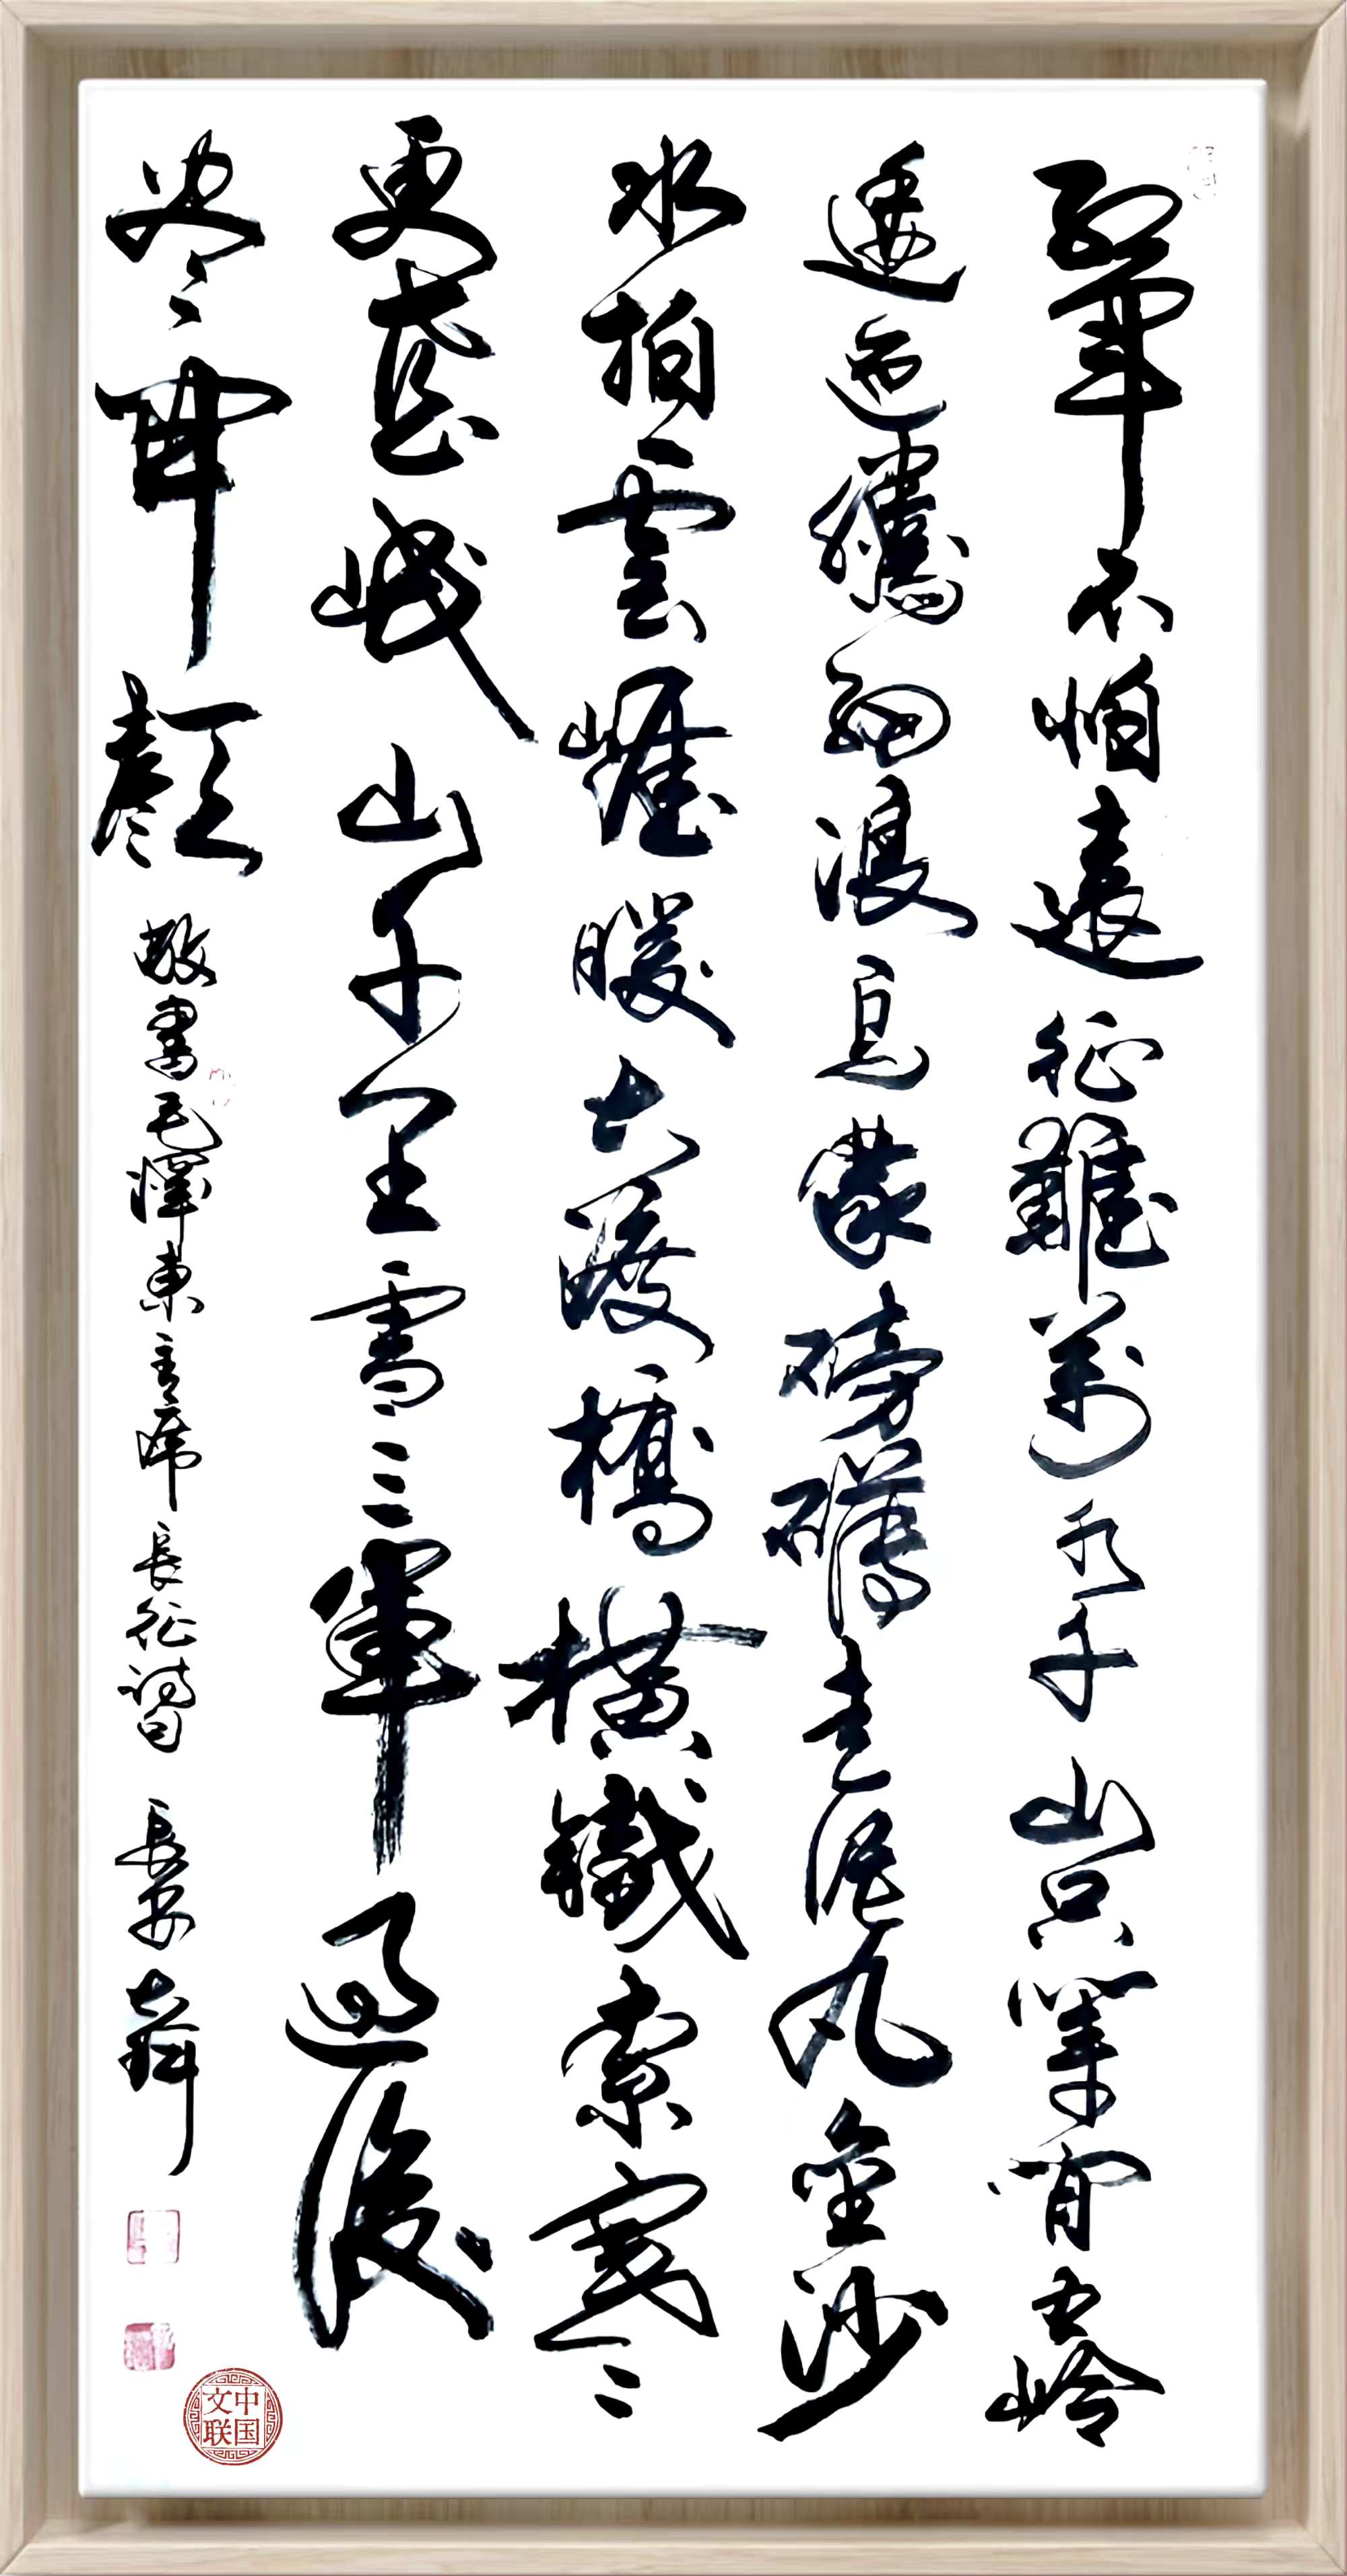 紅軍不怕遠征難萬水千山只等閒五嶺
逶迤騰細浪烏蒙磅礴走泥丸金沙
水拍雲崖暖大渡橋橫鐵索寒
更喜岷山千里雪三軍過後
盡開顏 敬書毛澤東主席長征詩 長安
中国文联